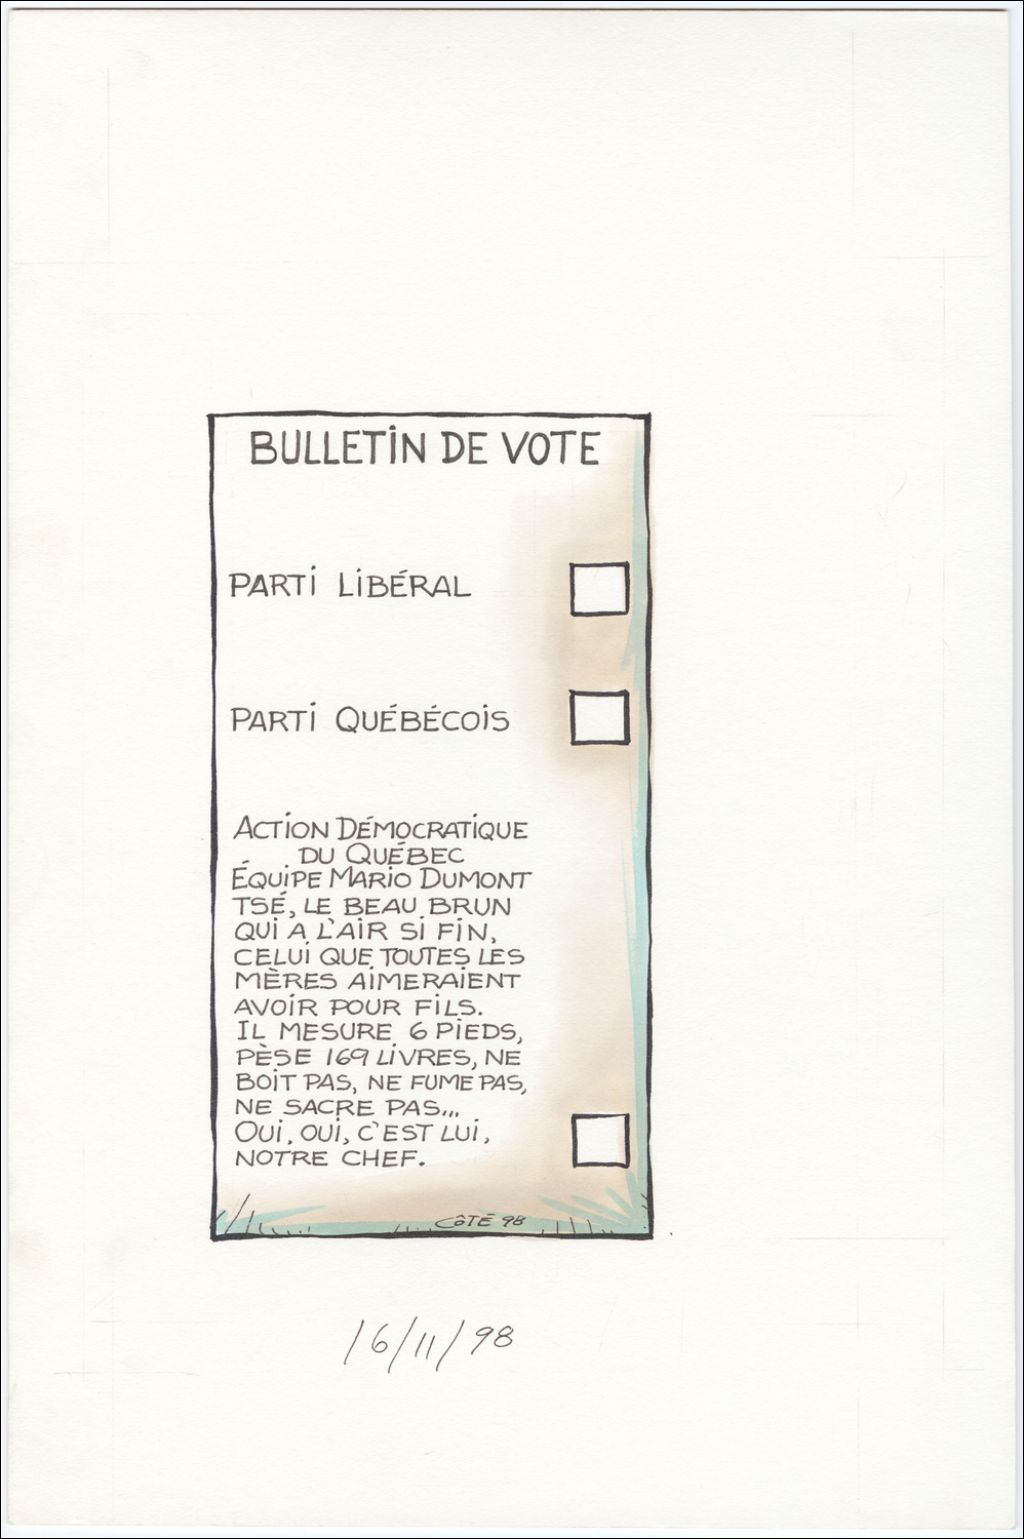 BULLETIN DE VOTE
PARTI LIBÉRAL
PARTI QUÉBÉCOIS
ACTION DÉMOCRATIQUE
DU QUÉBEC
ÉQUIPE MARIO DUMONT
TSÉ, LE BEAU BRUN
QUI A L'AIR SI FIN,
CELUI QUE TOUTES LES
MÈRES AIMERAIENT
AVOIR POUR FILS.
IL MESURE 6 PIEDS,
PÈSE 169 LIVRES, NE
BOIT PAS, NE FUME PAS,
NE SACRE PAS...
OUI, OUI, C'EST LUI,
NOTRE CHEF.
CÔTÉ 98
16/11/98